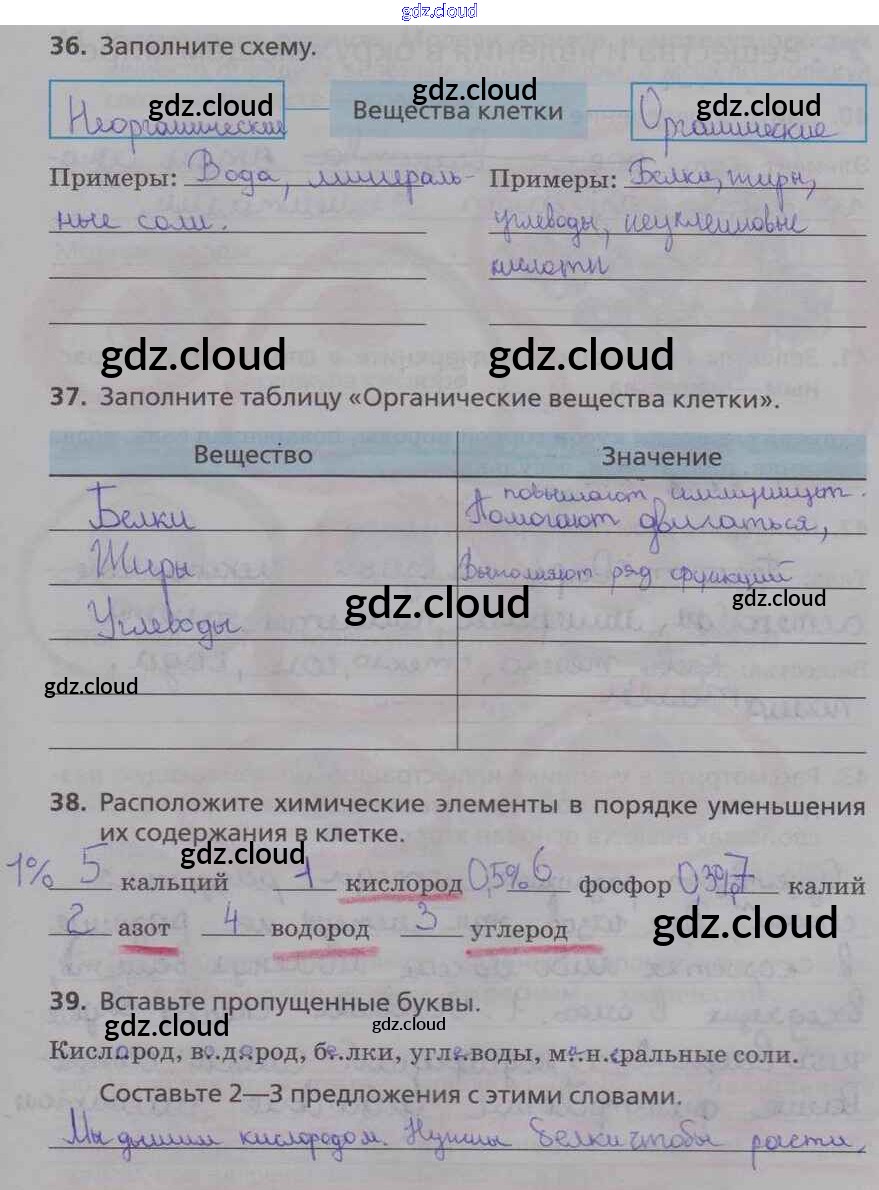 gdz.cloud
36. Заполните схему.
Неорганические gdz.cloud Вещества клетки gdz.cloud Органические gdz.cloud
Примеры: Вода, минераль-
ные соли.
Примеры: Белки, жиры,
углеводы, неуклеиновые
кислоти
gdz.cloud gdz.cloud
37. Заполните таблицу «Органические вещества клетки».
Вещество Значение
Белки повышают иммунитет. Помогают двигаться,
Жиры Выполняют ряд функций
Углеводы gdz.cloud gdz.cloud
gdz.cloud
38. Расположите химические элементы в порядке уменьшения
их содержания в клетке.
gdz.cloud
1% 5 кальций 1 кислород 0,5% 6 фосфор 0,3% 7 калий
2 азот 4 водород 3 углерод gdz.cloud
39. Вставьте пропущенные буквы.
gdz.cloud gdz.cloud
Кислород, водород, белки, углеводы, минеральные соли.
Составьте 2—3 предложения с этими словами.
Мы дышим кислородом. Нужны белки чтобы расти.